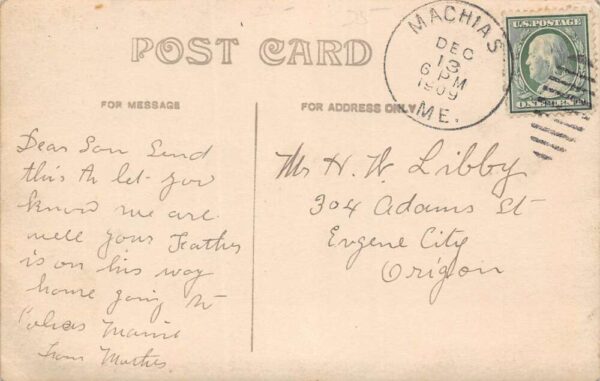 POST CARD
MACHIAS
DEC
13
6 PM
1909
ME.
U.S. POSTAGE
FOR MESSAGE
FOR ADDRESS ONLY
Dear Son Send
this to let you
know we are
well your Feather
is on his way
home going to
Maine
from Mother
Mr H. W. Libby
304 Adams St
Eugene City
Origon